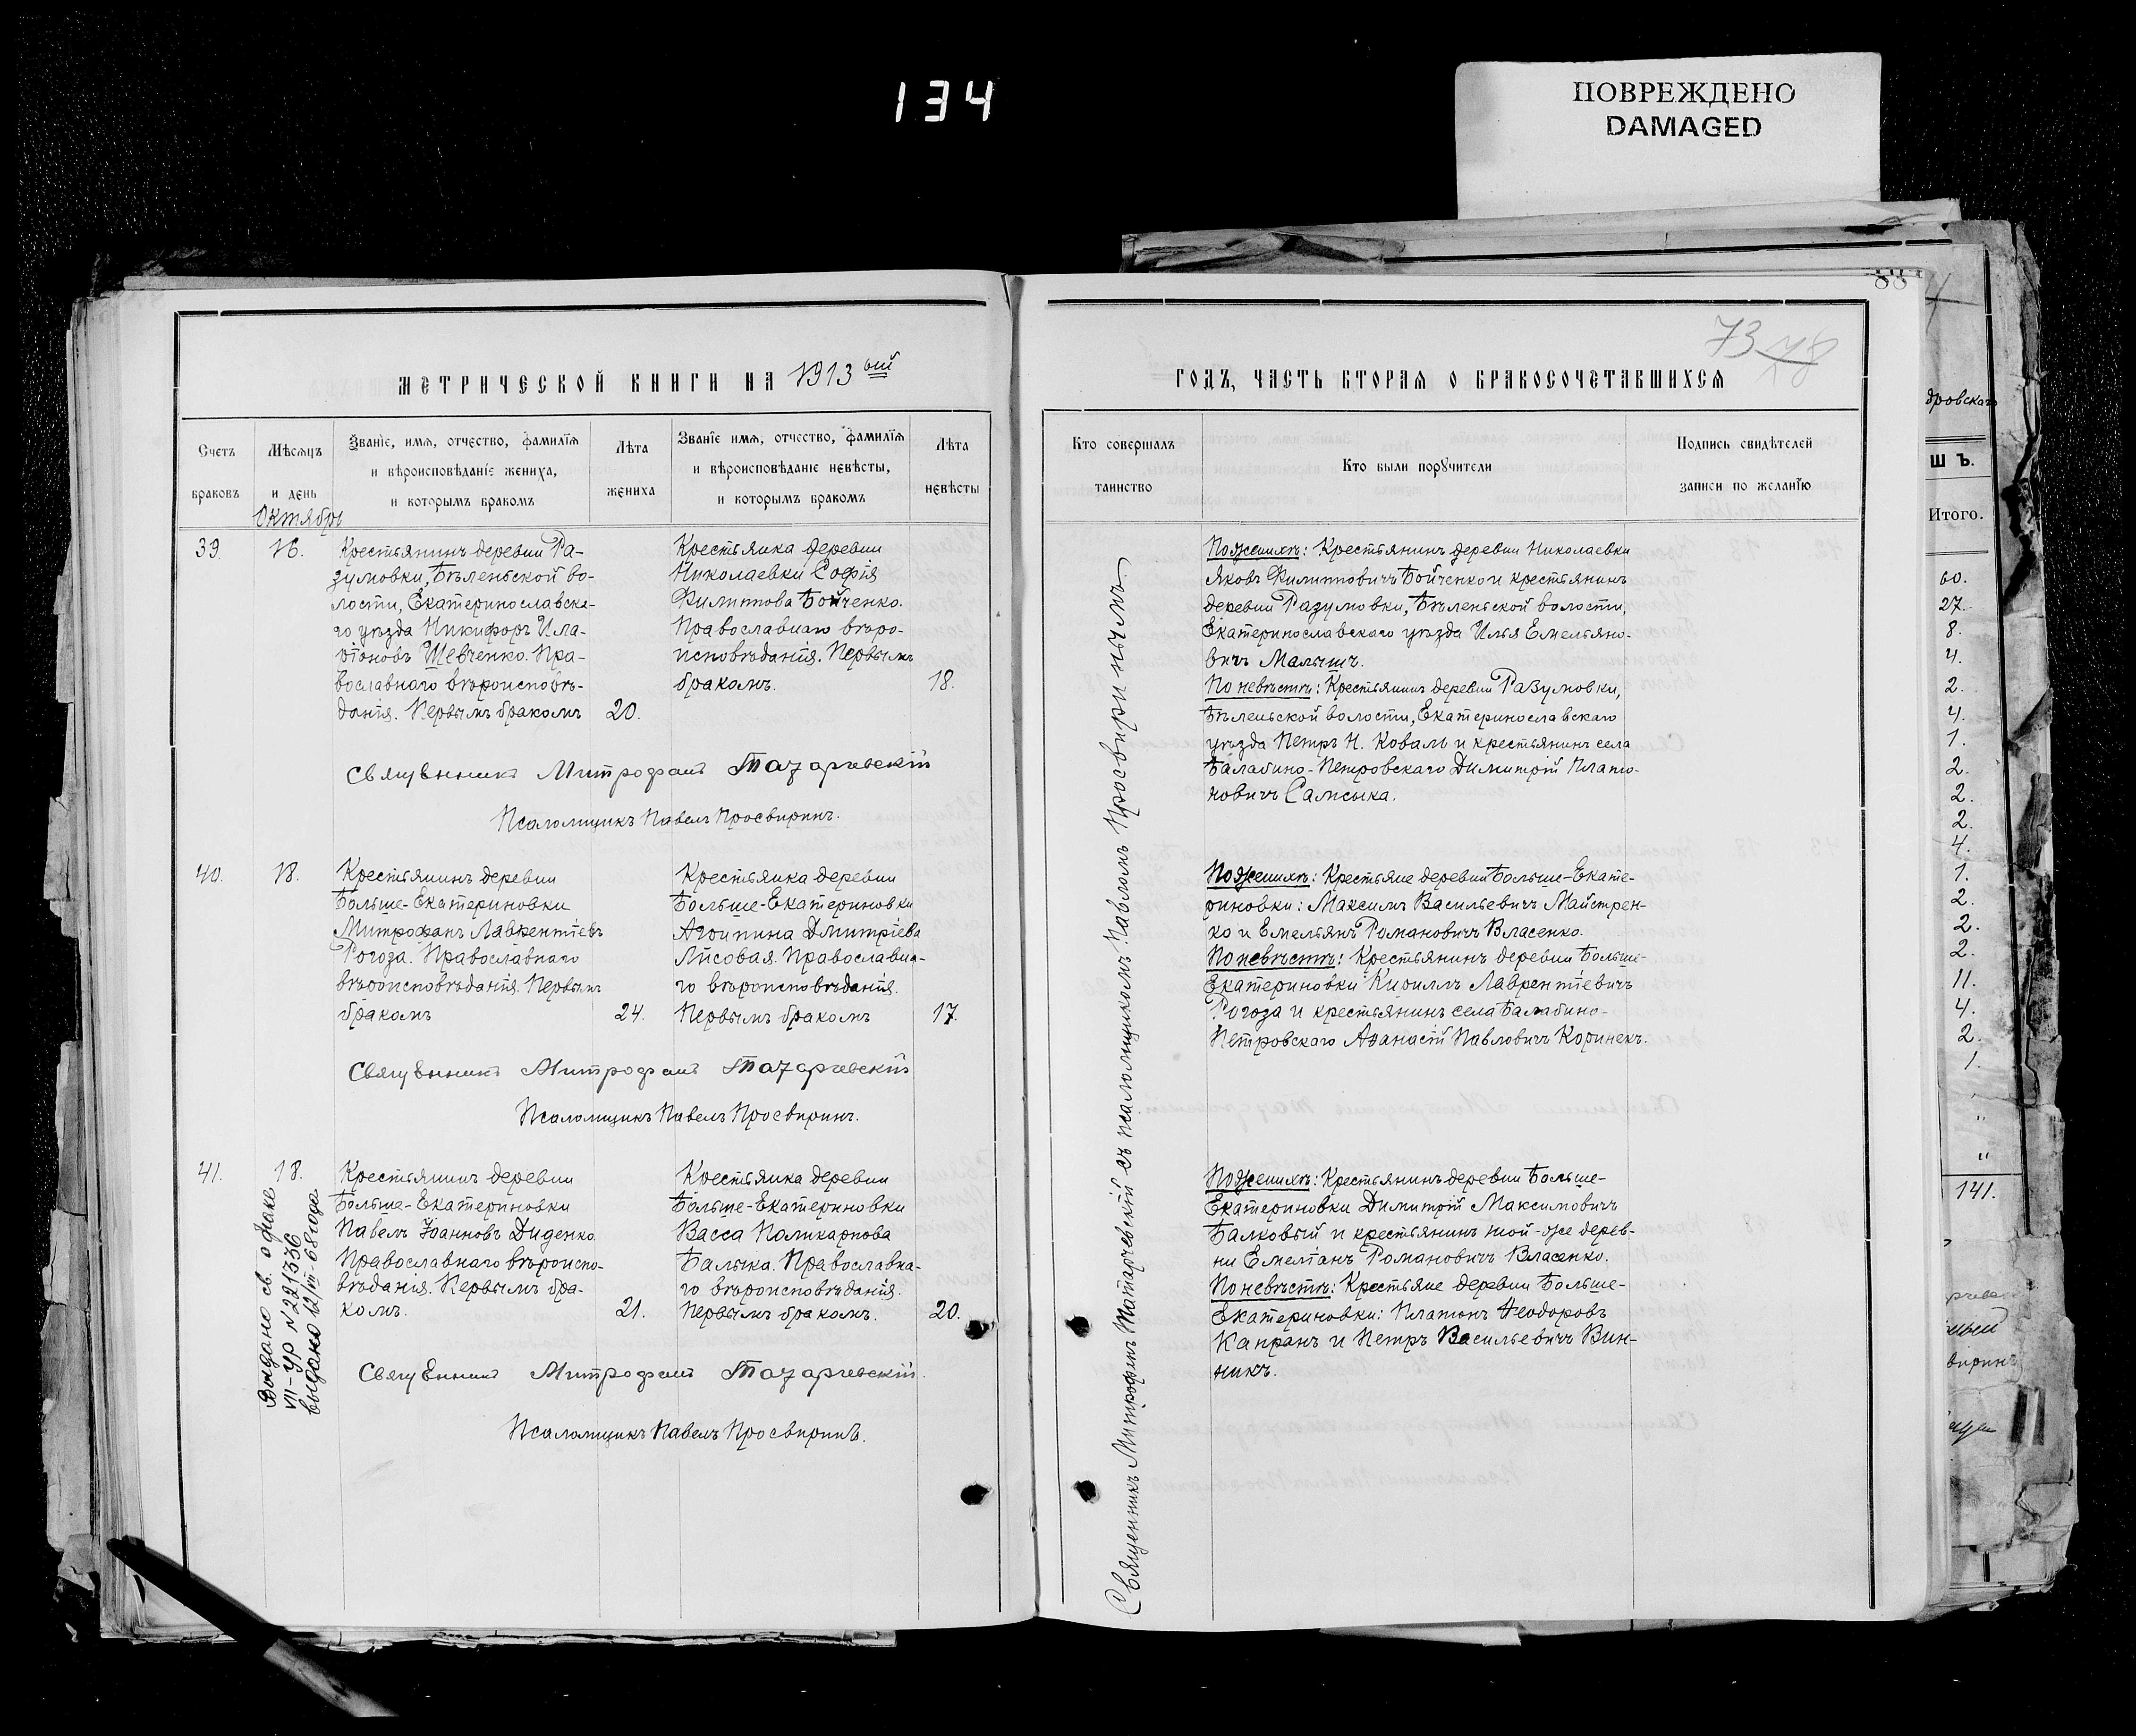 134
ПОВРЕЖДЕНО
DAMAGED
88
73
78
МЕТРИЧЕСКОЙ КНИГИ НА 1913 ый
Счетъ браковъ
Мѣсяцъ и день
Октябрь
Званіе, имя, отчество, фамилія
и вѣроисповѣданіе жениха,
и которымъ бракомъ
Лѣта жениха
Званіе имя, отчество, фамилія
и вѣроисповѣданіе невѣсты,
и которымъ бракомъ
Лѣта невѣсты
39.
16.
Крестьянинъ деревни Ра-
зумовки, Бѣленьской во-
лости, Екатеринославска-
го уѣзда Никифоръ Ила-
ріоновъ Шевченко. Пра-
вославнаго вѣроисповѣ-
данія. Первымъ бракомъ
20.
Крестьянка деревни
Николаевки Софія
Филиппова Бойченко.
Православнаго вѣро-
исповѣданія. Первымъ
бракомъ.
18.
Священникъ Митрофанъ Татарчевскій
Псаломщикъ Павелъ Просвиринъ.
40.
18.
Крестьянинъ деревни
Больше-Екатериновки
Митрофанъ Лаврентіевъ
Рогоза. Православнаго
вѣроисповѣданія. Первымъ
бракомъ
24.
Крестьянка деревни
Больше-Екатериновки
Агрипина Дмитріева
Лисовая. Православна-
го вѣроисповѣданія.
Первымъ бракомъ
17.
Священникъ Митрофанъ Татарчевскій
Псаломщикъ Павелъ Просвиринъ.
41.
18.
Выдано св. о браке
VII-УР № 221336
выдано 12/III-68 года
Крестьянинъ деревни
Больше-Екатериновки
Павелъ Іоанновъ Диденко.
Православнаго вѣроиспо-
вѣданія. Первымъ бра-
комъ.
21.
Крестьянка деревни
Больше-Екатериновки
Васса Поликарпова
Балыка. Православна-
го вѣроисповѣданія.
Первымъ бракомъ.
20.
Священникъ Митрофанъ Татарчевскій.
Псаломщикъ Павелъ Просвиринъ.
ГОДЪ, ЧАСТЬ ВТОРАЯ О БРАКОСОЧЕТАВШИХСЯ
Кто совершалъ таинство
Кто были поручители
Подпись свидѣтелей
записи по желанію
Священникъ Митрофанъ Татарчевскій съ псаломщикомъ Павломъ Просвиринымъ.
По женихѣ: Крестьянинъ деревни Николаевки
Яковъ Филипповичъ Бойченко и крестьянинъ
деревни Разумовки, Бѣленьской волости,
Екатеринославскаго уѣзда Илья Емельяно-
вичъ Малышъ.
По невѣстѣ: Крестьянинъ деревни Разумовки,
Бѣленьской волости, Екатеринославскаго
уѣзда Петръ Н. Коваль и крестьянинъ села
Балабино-Петровскаго Димитрій Плато-
новичъ Самсыка.
По женихѣ: Крестьяне деревни Больше-Екате-
риновки: Максимъ Васильевичъ Майстрен-
ко и Емельянъ Романовичъ Власенко.
По невѣстѣ: Крестьянинъ деревни Больше-
Екатериновки Кириллъ Лаврентіевичъ
Рогоза и крестьянинъ села Балабино-
Петровскаго Аѳанасій Павловичъ Коринекъ.
По женихѣ: Крестьянинъ деревни Больше-
Екатериновки Димитрій Максимовичъ
Балковый и крестьянинъ той-же дерев-
ни Емеліанъ Романовичъ Власенко.
По невѣстѣ: Крестьяне деревни Больше-
Екатериновки: Платонъ Ѳеодоровъ
Капранъ и Петръ Васильевичъ Вин-
никъ.
дровскаго
ШЪ.
Итого.
60.
27.
8.
4.
2.
4.
1.
2.
2.
2.
4.
1.
2.
2.
2.
11.
4.
2.
1.
"
"
141.